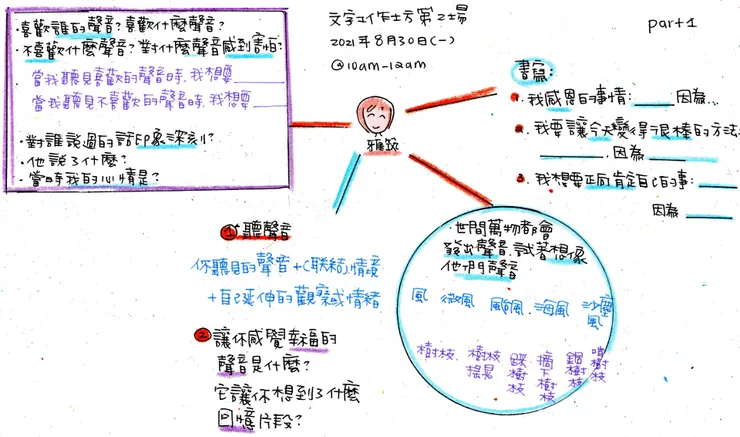 文字工作土方第2場
2021年8月30日(一)
@10am-12am
part1
・喜歡誰的聲音?喜歡什麼聲音?
・不喜歡什麼聲音?對什麼聲音感到害怕?
當我聽見喜歡的聲音時,我想要
當我聽見不喜歡的聲音時,我想要
・對誰說過的話印象深刻?
・他說了什麼?
・當時我的心情是?
書寫:
1. 我感恩的事情: 因為..
2. 我要讓今天變得很棒的方法
, 因為
3. 我想要正向肯定自己的事:
因為
①聽聲音
你聽見的聲音+(聯結)情境
+自己延伸的觀察或情緒
②讓你感覺幸福的
聲音是什麼?
它讓你想到了什麼
回憶片段?
・世間萬物都會
發出聲音,試著想像
他們聲音
風 微風 颱風 海風 沙塵風
樹枝. 樹枝搖晃 踩樹枝 摘下樹枝 鋸樹枝 啃樹枝